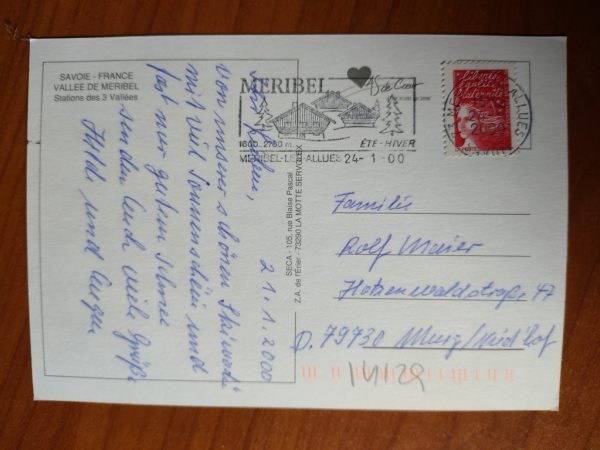 SAVOIE - FRANCE
VALLEE DE MERIBEL
Stations des 3 Vallées
21.1.2000
Ihr Lieben,
von unserer schönen Skiwoche
mit viel Sonnenschein und
fast nur gutem Schnee
senden Euch viele Grüße
Hilde und Eugen
SECA - 105, rue Blaise Pascal
Z.A. de l'Erier - 73290 LA MOTTE SERVOLEX
MERIBEL
As de Cœur
1600-2700 m.
ÉTÉ-HIVER
MERIBEL-LES-ALLUES 24-1-00
Liberté
Égalité
Fraternité
ALLUES
Familie
Rolf Maier
Hotzenwaldstraße 47
D. 79730 Murg/Nied'hof
14129